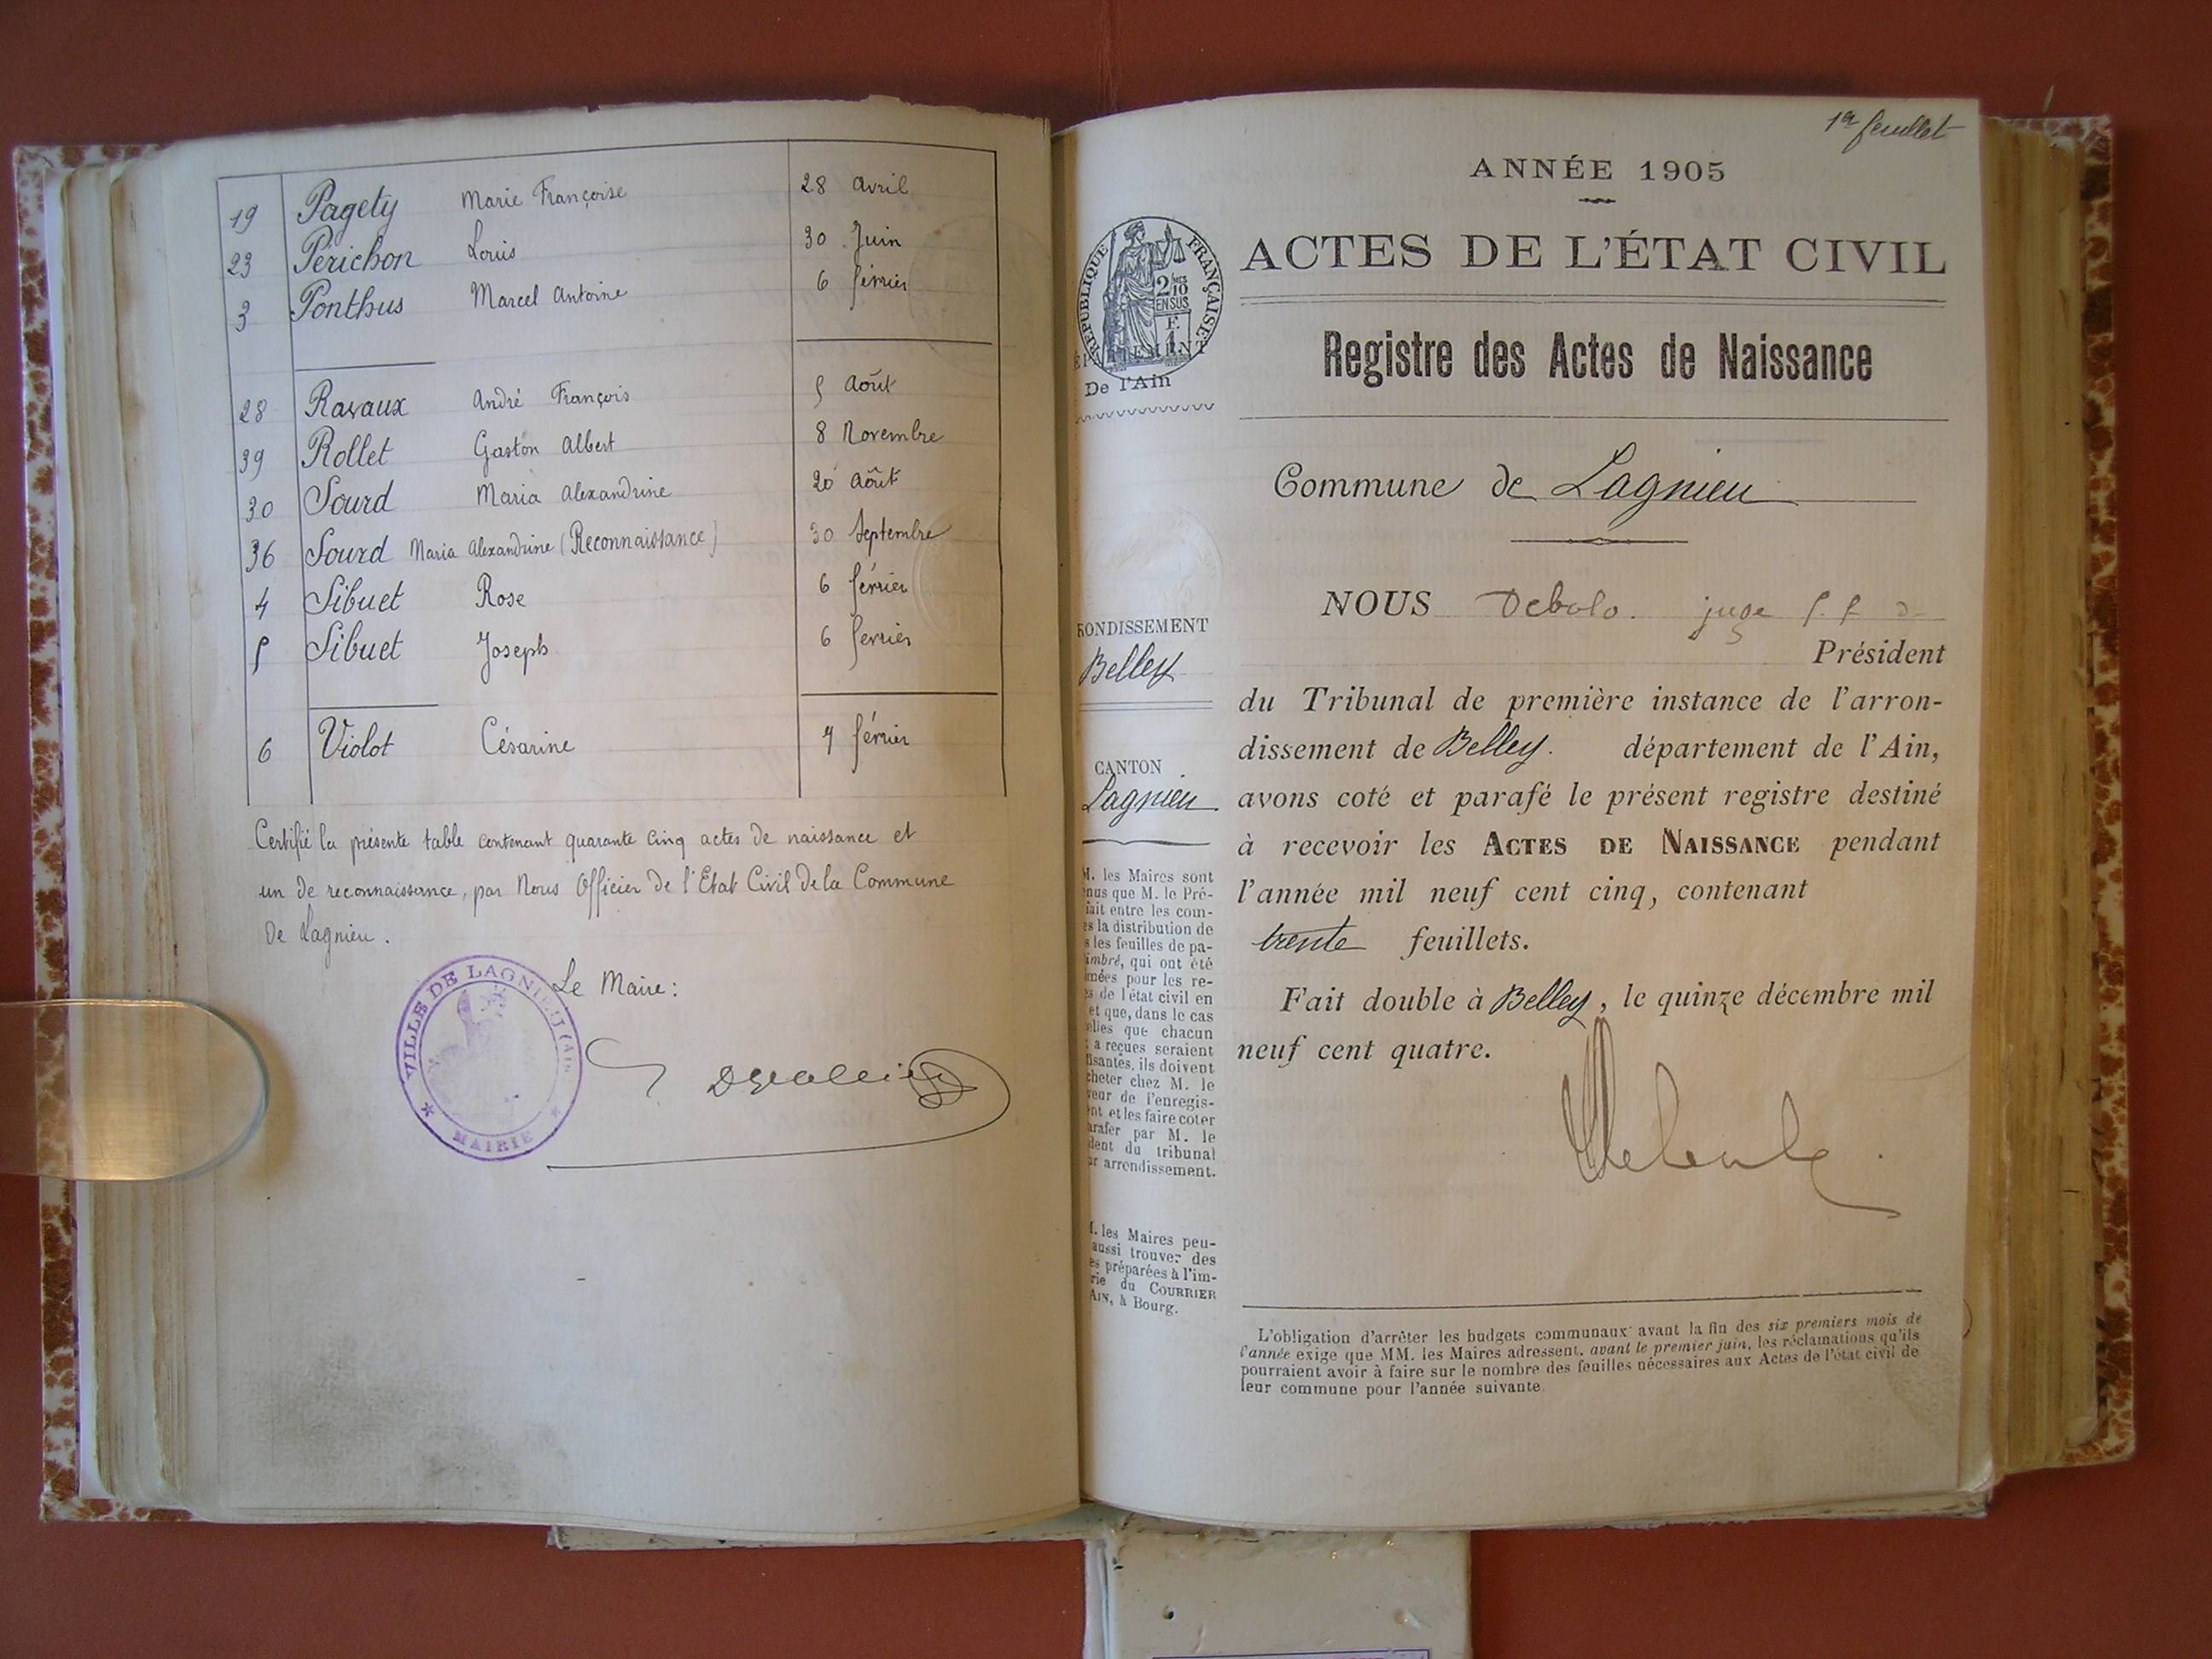 19 Pagety Marie Françoise 28 avril
23 Périchon Louis 30 Juin
3 Ponthus Marcel Antoine 6 février
28 Ravaux André François 5 Août
39 Rollet Gaston Albert 8 Novembre
30 Sourd Maria Alexandrine 20 Août
36 Sourd Maria Alexandrine (Reconnaissance) 30 Septembre
4 Sibuet Rose 6 février
5 Sibuet Joseph 6 février
6 Violot Césarine 7 février
Certifié la présente table contenant quarante cinq actes de naissance et
un de reconnaissance, par Nous Officier de l'Etat Civil de la Commune
de Lagnieu.
Le Maire:
VILLE DE LAGNIEU (Ain)
MAIRIE
1er feuillet
ANNÉE 1905
ACTES DE L'ÉTAT CIVIL
RÉPUBLIQUE FRANÇAISE
2/10 EN SUS
De l'Ain
Registre des Actes de Naissance
Commune de Lagnieu
NOUS juge f. f. de
Président
du Tribunal de première instance de l'arron-
dissement de Belley. département de l'Ain,
avons coté et parafé le présent registre destiné
à recevoir les ACTES DE NAISSANCE pendant
l'année mil neuf cent cinq, contenant
trente feuillets.
Fait double à Belley, le quinze décembre mil
neuf cent quatre.
RONDISSEMENT
Belley
CANTON
Lagnieu
M. les Maires sont
nus que M. le Pré-
fait entre les com-
es la distribution de
s les feuilles de pa-
imbré, qui ont été
mées pour les re-
es de l'état civil en
et que, dans le cas
elles que chacun
a reçues seraient
isantes, ils doivent
cheter chez M. le
veur de l'enregis-
nt et les faire coter
arafer par M. le
dent du tribunal
ur arrondissement.
M. les Maires peu-
aussi trouver des
es préparées à l'im-
rie du COURRIER
AIN, à Bourg.
L'obligation d'arrêter les budgets communaux avant la fin des six premiers mois de
l'année exige que MM. les Maires adressent, avant le premier juin, les réclamations qu'ils
pourraient avoir à faire sur le nombre des feuilles nécessaires aux Actes de l'état civil de
leur commune pour l'année suivante.